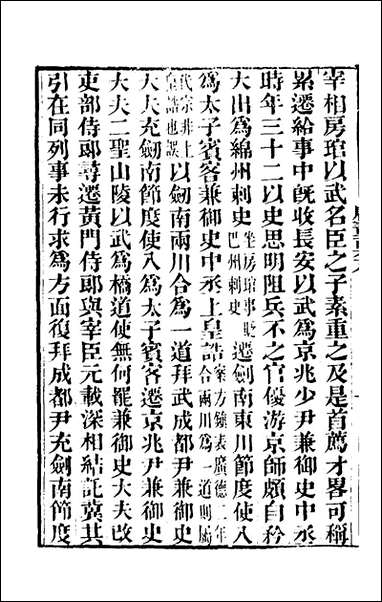 宰相房琯以武名臣之子素重之及是首薦才畧可稱
累遷給事中旣收長安以武爲京兆少尹兼御史中丞
時年三十二以史思明阻兵不之官優游京師頗自矜
大出爲綿州刺史坐房琯事貶巴州刺史遷劒南東川節度使入
爲太子賓客兼御史中丞上皇誥案方鎭表廣德二年合兩川爲一道則屬
代宗非上皇誥也誤以劒南兩川合爲一道拜武成都尹兼御史
大夫充劒南節度使入爲太子賓客遷京兆尹兼御史
大夫二聖山陵以武爲橋道使無何罷兼御史大夫改
吏部侍郎尋遷黃門侍郎與宰臣元載深相結託冀其
引在同列事未行求爲方面復拜成都尹充劒南節度